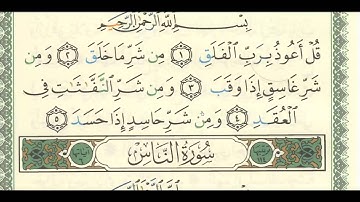 بِسْمِ ٱللَّهِ ٱلرَّحْمَٰنِ ٱلرَّحِيمِ
قُلْ أَعُوذُ بِرَبِّ ٱلْفَلَقِ ١ مِن شَرِّ مَا خَلَقَ ٢ وَمِن
شَرِّ غَاسِقٍ إِذَا وَقَبَ ٣ وَمِن شَرِّ ٱلنَّفَّٰثَٰتِ فِي
ٱلْعُقَدِ ٤ وَمِن شَرِّ حَاسِدٍ إِذَا حَسَدَ ٥
سُورَةُ النَّاسِ